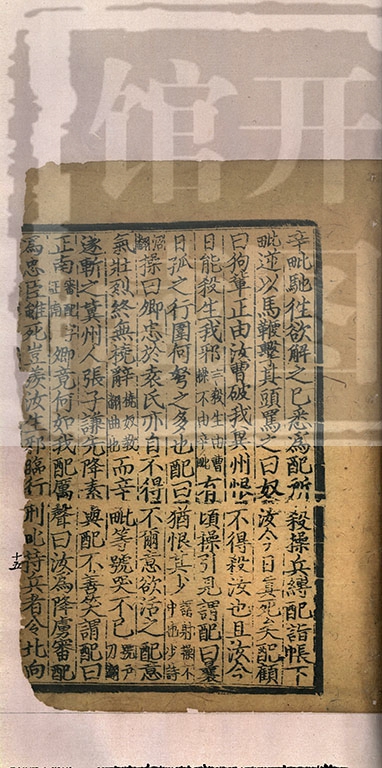 辛毗馳徃欲解之已悉為配所殺操兵縛配詣帳下
毗逆以馬鞭擊其頭罵之曰奴汝今日真死矣配顧
曰狗輩正由汝曹破我冀州恨不得殺汝也且汝今
日能殺生我邪言殺生由曹操不由辛毗有頃操引見謂配曰曩
日孤之行圍何弩之多也配曰猶恨其少謂射操不中也少詩
沼翻操曰卿忠於袁氏亦自不得不爾意欲活之配意
氣壯烈終無撓辭撓奴教翻曲也而辛毗等號哭不已號戶刀翻
遂斬之冀州人張子謙先降素與配不善笑謂配曰
正南審配字正南卿竟何如我配厲聲曰汝為降虜審配
為忠臣雖死豈羨汝生邪臨行刑叱持兵者令北向
十五
开图
馆